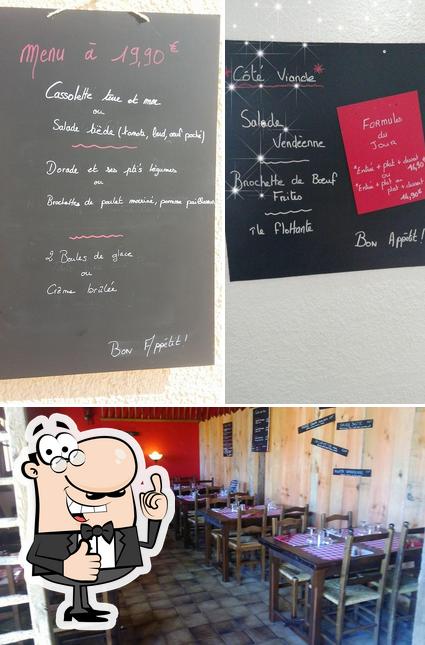 Menu à 19,90 €
Cassolette terre et mer
ou
Salade tiède (tomate, lard, œuf poché)
Dorade et ses p'tis légumes
ou
Brochettes de poulet mariné, pomme paillasson
2 Boules de glace
ou
Crème brûlée
Bon Appétit!
*Côté Viande*
Salade
Vendéenne
Brochette de Bœuf
Frites
île flottante
Bon Appétit!
Formules
du
Jour
*Entrée + plat + dessert
ou
*Entrée + plat ou
plat + dessert
14,90€